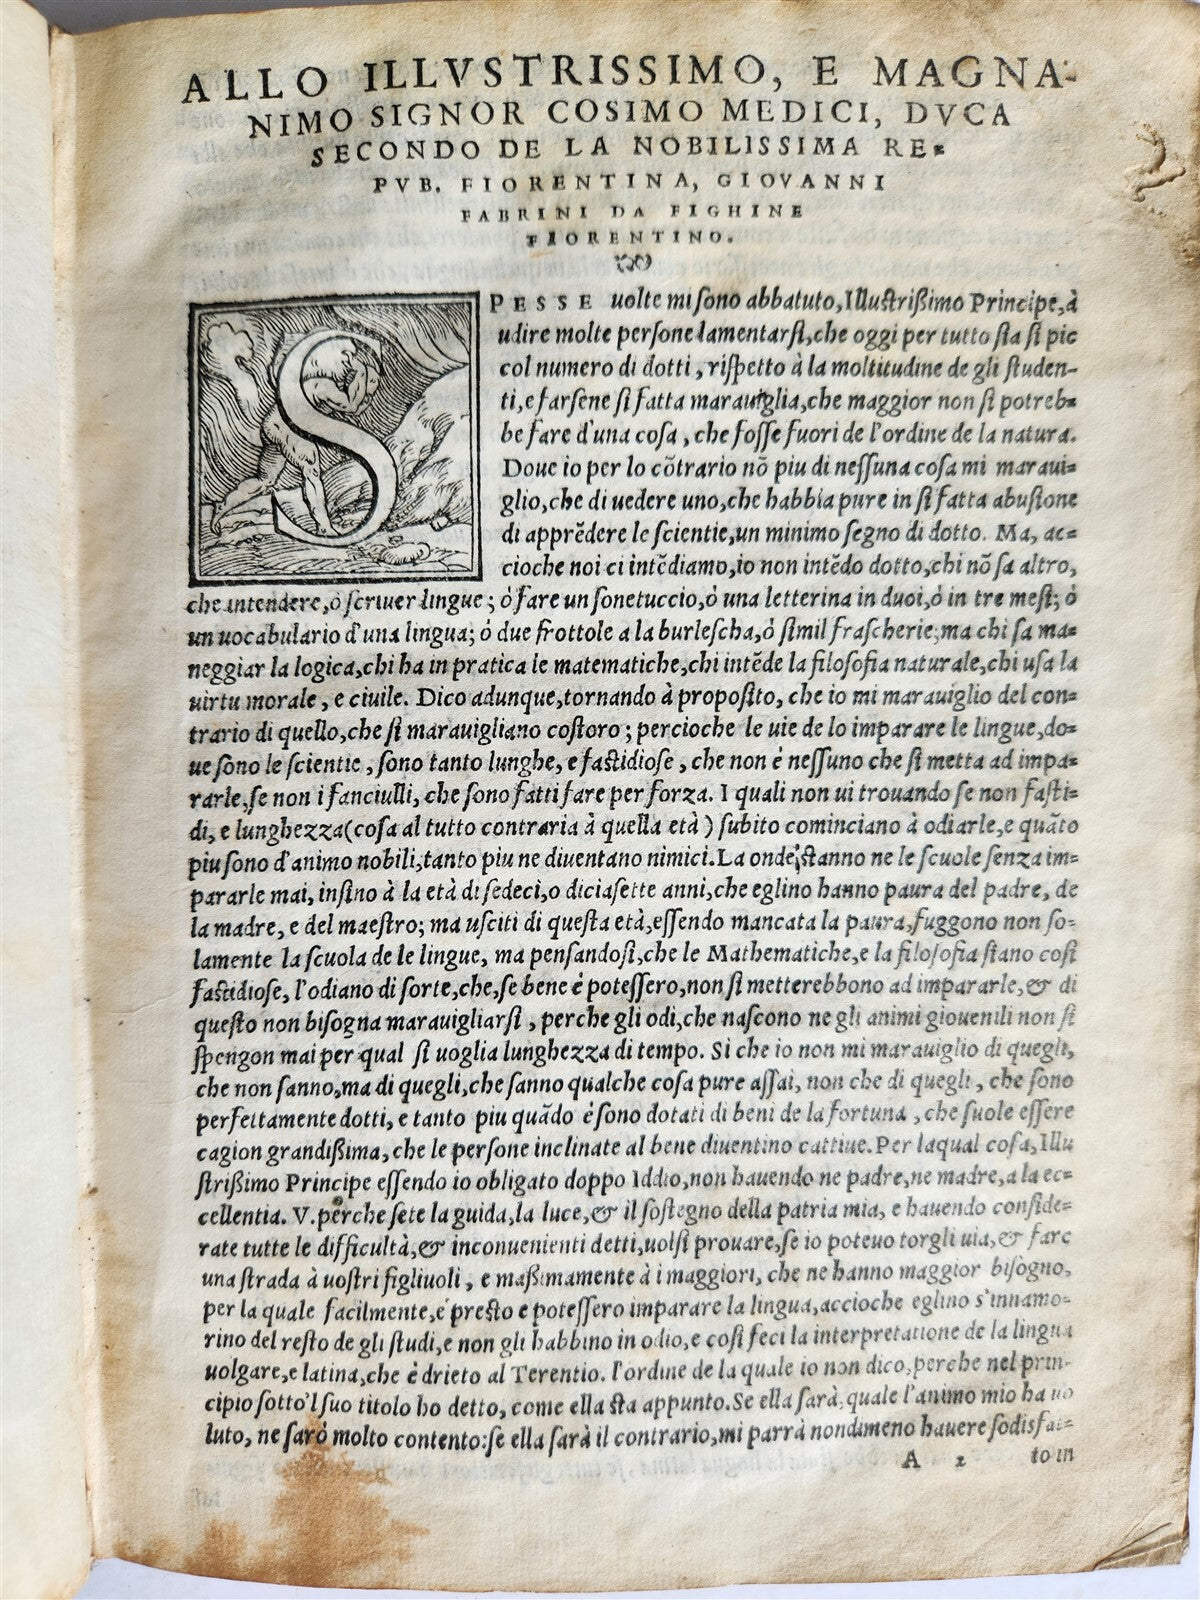 ALLO ILLVSTRISSIMO, E MAGNA-
NIMO SIGNOR COSIMO MEDICI, DVCA
SECONDO DE LA NOBILISSIMA RE=
PVB. FIORENTINA, GIOVANNI
FABRINI DA FIGHINE
FIORENTINO.
SPESSE uolte mi sono abbatuto, Illustrißimo Principe, à
udire molte persone lamentarsi, che oggi per tutto sia si pic
col numero di dotti, rispetto à la moltitudine de gli studen-
ti, e farsene si fatta marauiglia, che maggior non si potreb=
be fare d'una cosa, che fosse fuori de l'ordine de la natura.
Doue io per lo cōtrario nō piu di nessuna cosa mi maraui=
glio, che di uedere uno, che habbia pure in si fatta abusione
di apprēdere le scientie, un minimo segno di dotto. Ma, ac=
cioche noi ci intēdiamo, io non intēdo dotto, chi nō sa altro,
che intendere, ò scriuer lingue; ò fare un sonetuccio, ò una letterina in duoi, ò in tre mesi; ò
un uocabulario d'una lingua; ò due frottole a la burlescha, ò simil frascherie; ma chi sa ma=
neggiar la logica, chi ha in pratica le matematiche, chi intēde la filosofia naturale, chi usa la
uirtu morale, e ciuile. Dico adunque, tornando à proposito, che io mi marauiglio del con=
trario di quello, che si marauigliano costoro; percioche le uie de lo imparare le lingue, do=
ue sono le scientie, sono tanto lunghe, e fastidiose, che non è nessuno che si metta ad impa=
rarle, se non i fanciulli, che sono fatti fare per forza. I quali non ui trouando se non fasti=
di, e lunghezza (cosa al tutto contraria à quella età) subito cominciano à odiarle, e quāto
piu sono d'animo nobili, tanto piu ne diuentano nimici. La onde stanno ne le scuole senza im=
pararle mai, insino à la età di sedeci, o diciasette anni, che eglino hanno paura del padre, de
la madre, e del maestro; ma usciti di questa età, essendo mancata la paura, fuggono non so-
lamente la scuola de le lingue, ma pensandosi, che le Mathematiche, e la filosofia siano cosi
fastidiose, l'odiano di sorte, che, se bene è potessero, non si metterebbono ad impararle, & di
questo non bisogna marauigliarsi, perche gli odi, che nascono ne gli animi giouenili non si
spengon mai per qual si uoglia lunghezza di tempo. Si che io non mi marauiglio di quegli,
che non sanno, ma di quegli, che sanno qualche cosa pure assai, non che di quegli, che sono
perfettamente dotti, e tanto piu quādo è sono dotati di beni de la fortuna, che suole essere
cagion grandißima, che le persone inclinate al bene diuentino cattiue. Per laqual cosa, Illu
strißimo Principe essendo io obligato doppo Iddio, non hauendo ne padre, ne madre, a la ec=
cellentia. V. perche sete la guida, la luce, & il sostegno della patria mia, e hauendo conside=
rate tutte le difficultà, & inconuenienti detti, uolsi prouare, se io poteuo torgli uia, & fare
una strada à uostri figliuoli, e maßimamente à i maggiori, che ne hanno maggior bisogno,
per la quale facilmente, e presto e potessero imparare la lingua, accioche eglino s'innamo-
rino del resto de gli studi, e non gli habbino in odio, e cosi feci la interpretatione de la lingua
uolgare, e latina, che è drieto al Terentio. l'ordine de la quale io non dico, perche nel prin-
cipio sotto'l suo titolo ho detto, come ella sta appunto. Se ella sarà, quale l'animo mio ha uo
luto, ne sarò molto contento: se ella sarà il contrario, mi parrà nondimeno hauere sodisfat=
A 2 to in